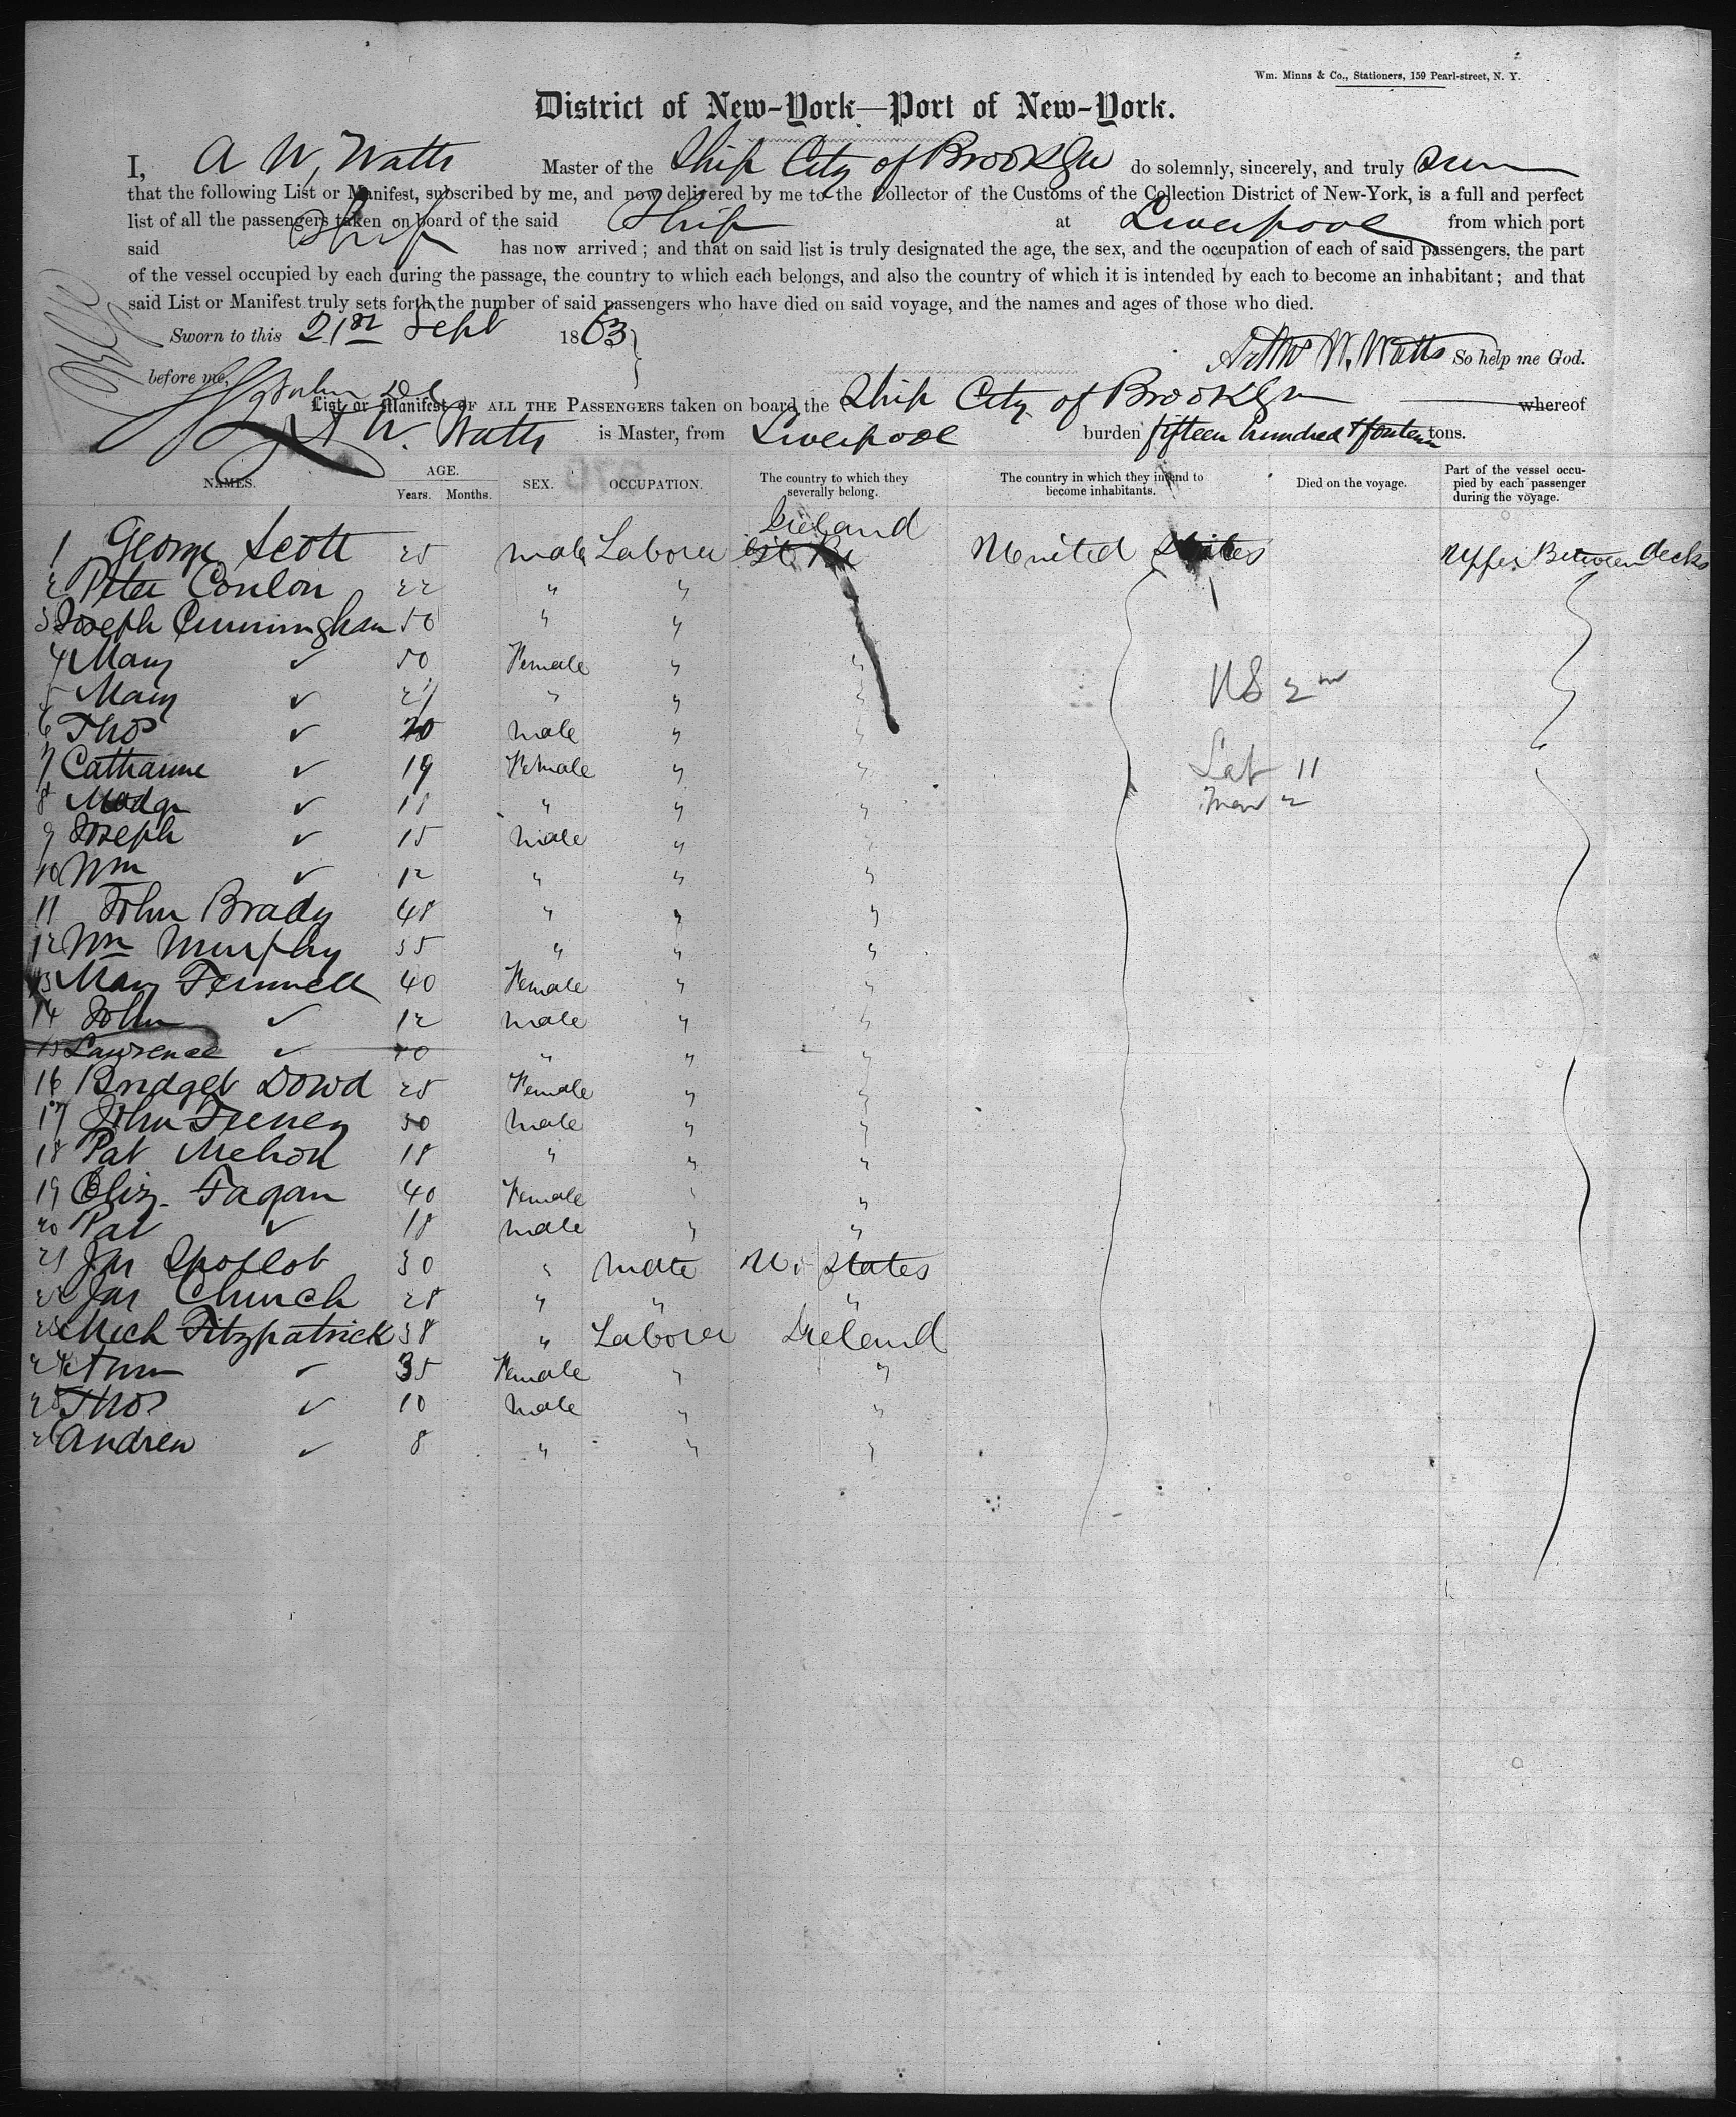 Wm. Minns & Co., Stationers, 159 Pearl-street, N. Y.
District of New-York—Port of New-York.
I, A W, Watts Master of the Ship City of Brooklyn do solemnly, sincerely, and truly
that the following List or Manifest, subscribed by me, and now delivered by me to the Collector of the Customs of the Collection District of New-York, is a full and perfect
list of all the passengers taken on board of the said Ship at Liverpool from which port
said Ship has now arrived; and that on said list is truly designated the age, the sex, and the occupation of each of said passengers, the part
of the vessel occupied by each during the passage, the country to which each belongs, and also the country of which it is intended by each to become an inhabitant; and that
said List or Manifest truly sets forth the number of said passengers who have died on said voyage, and the names and ages of those who died.
Sworn to this 21st Sept 1863
W. Watts So help me God.
before me,
List or Manifest OF ALL THE PASSENGERS taken on board the Ship City of Brooklyn whereof
A W. Watts is Master, from Liverpool burden fifteen hundred & fourteen tons.
NAMES. AGE. Years. Months. SEX. OCCUPATION. The country to which they severally belong. The country in which they intend to become inhabitants. Died on the voyage. Part of the vessel occupied by each passenger during the voyage.
Ireland
1 George Scott 25 male Laborer United States Upper Between decks
2 Peter Conlon 22 " "
3 Joseph Cunningham 50 " "
4 Mary ✓ 50 Female " "
5 Mary ✓ 21 " " "
6 Thos ✓ 20 male " "
7 Catharine ✓ 19 Female " "
8 ✓ 18 " " "
9 Joseph ✓ 15 male " "
10 Wm ✓ 12 " " "
11 John Brady 48 " " "
12 Wm Murphy 35 " " "
13 Mary Fennell 40 Female " "
14 John ✓ 12 male " "
15 Lawrence ✓ " " "
16 Bridget Dowd 25 Female " "
17 John Feeney 30 male " "
18 Pat 18 " " "
19 Eliz. Fagan 40 Female " "
20 Pat ✓ 18 male " "
21 Jas 30 " mate U. States
22 Jas Church 28 " " "
23 Mich Fitzpatrick 38 " Laborer Ireland
24 Ann ✓ 35 Female " "
25 Thos ✓ 10 male " "
26 Andrew ✓ 8 " " "